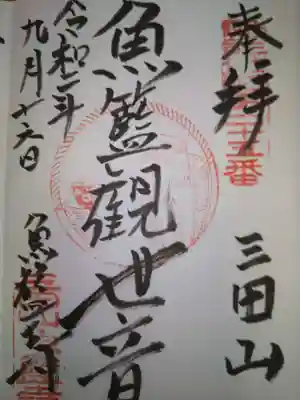 奉拝 三田山
魚籃観世音
令和二年
九月十六日
魚籃寺